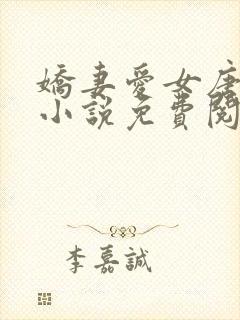 嬌妻愛女唐
小說免費閱
李嘉誠